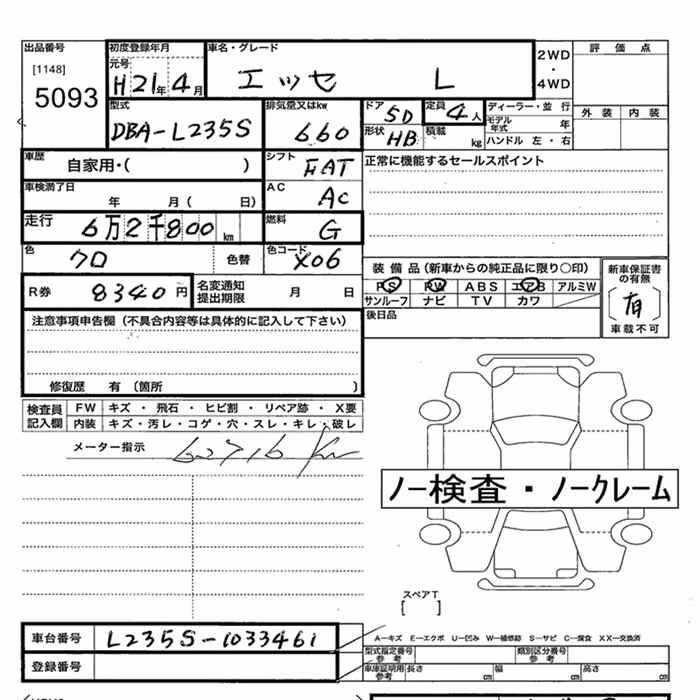 出品番号 初度登録年月 車名・グレード 2WD ・ 4WD 評価点
[1148] 元号
5093 H21年 4月 エッセ L
型式 排気量又はkw ドア 5D 定員 4人 ディーラー・並行 外装 内装
DBA-L235S 660 形状 HB 積載 kg モデル年式 年
ハンドル 左・右
車歴 自家用・( ) シフト FAT 正常に機能するセールスポイント
車検満了日 年 月( 日) AC AC
走行 6万2千800km 燃料 G
色 クロ 色替 色コード X06
装備品(新車からの純正品に限り○印) 新車保証書の有無
R券 8340円 名変通知提出期限 月 日 PS PW ABS エアB アルミW 有
サンルーフ ナビ TV カワ 車載不可
注意事項申告欄(不具合内容等は具体的に記入して下さい) 後日品
修復歴 有(箇所 )
検査員記入欄 FW キズ・飛石・ヒビ割・リペア跡・X要
内装 キズ・汚レ・コゲ・穴・スレ・キレ・破レ
メーター指示 62716 Km
ノー検査・ノークレーム
スペアT
[ ]
車台番号 L235S-1033461
A-キズ E-エクボ U-凹み W-補修跡 S-サビ C-腐食 XX-交換済
登録番号 型式指定番号 参考 類別区分番号 参考
車庫証明用 参考 長さ cm 幅 cm 高さ cm